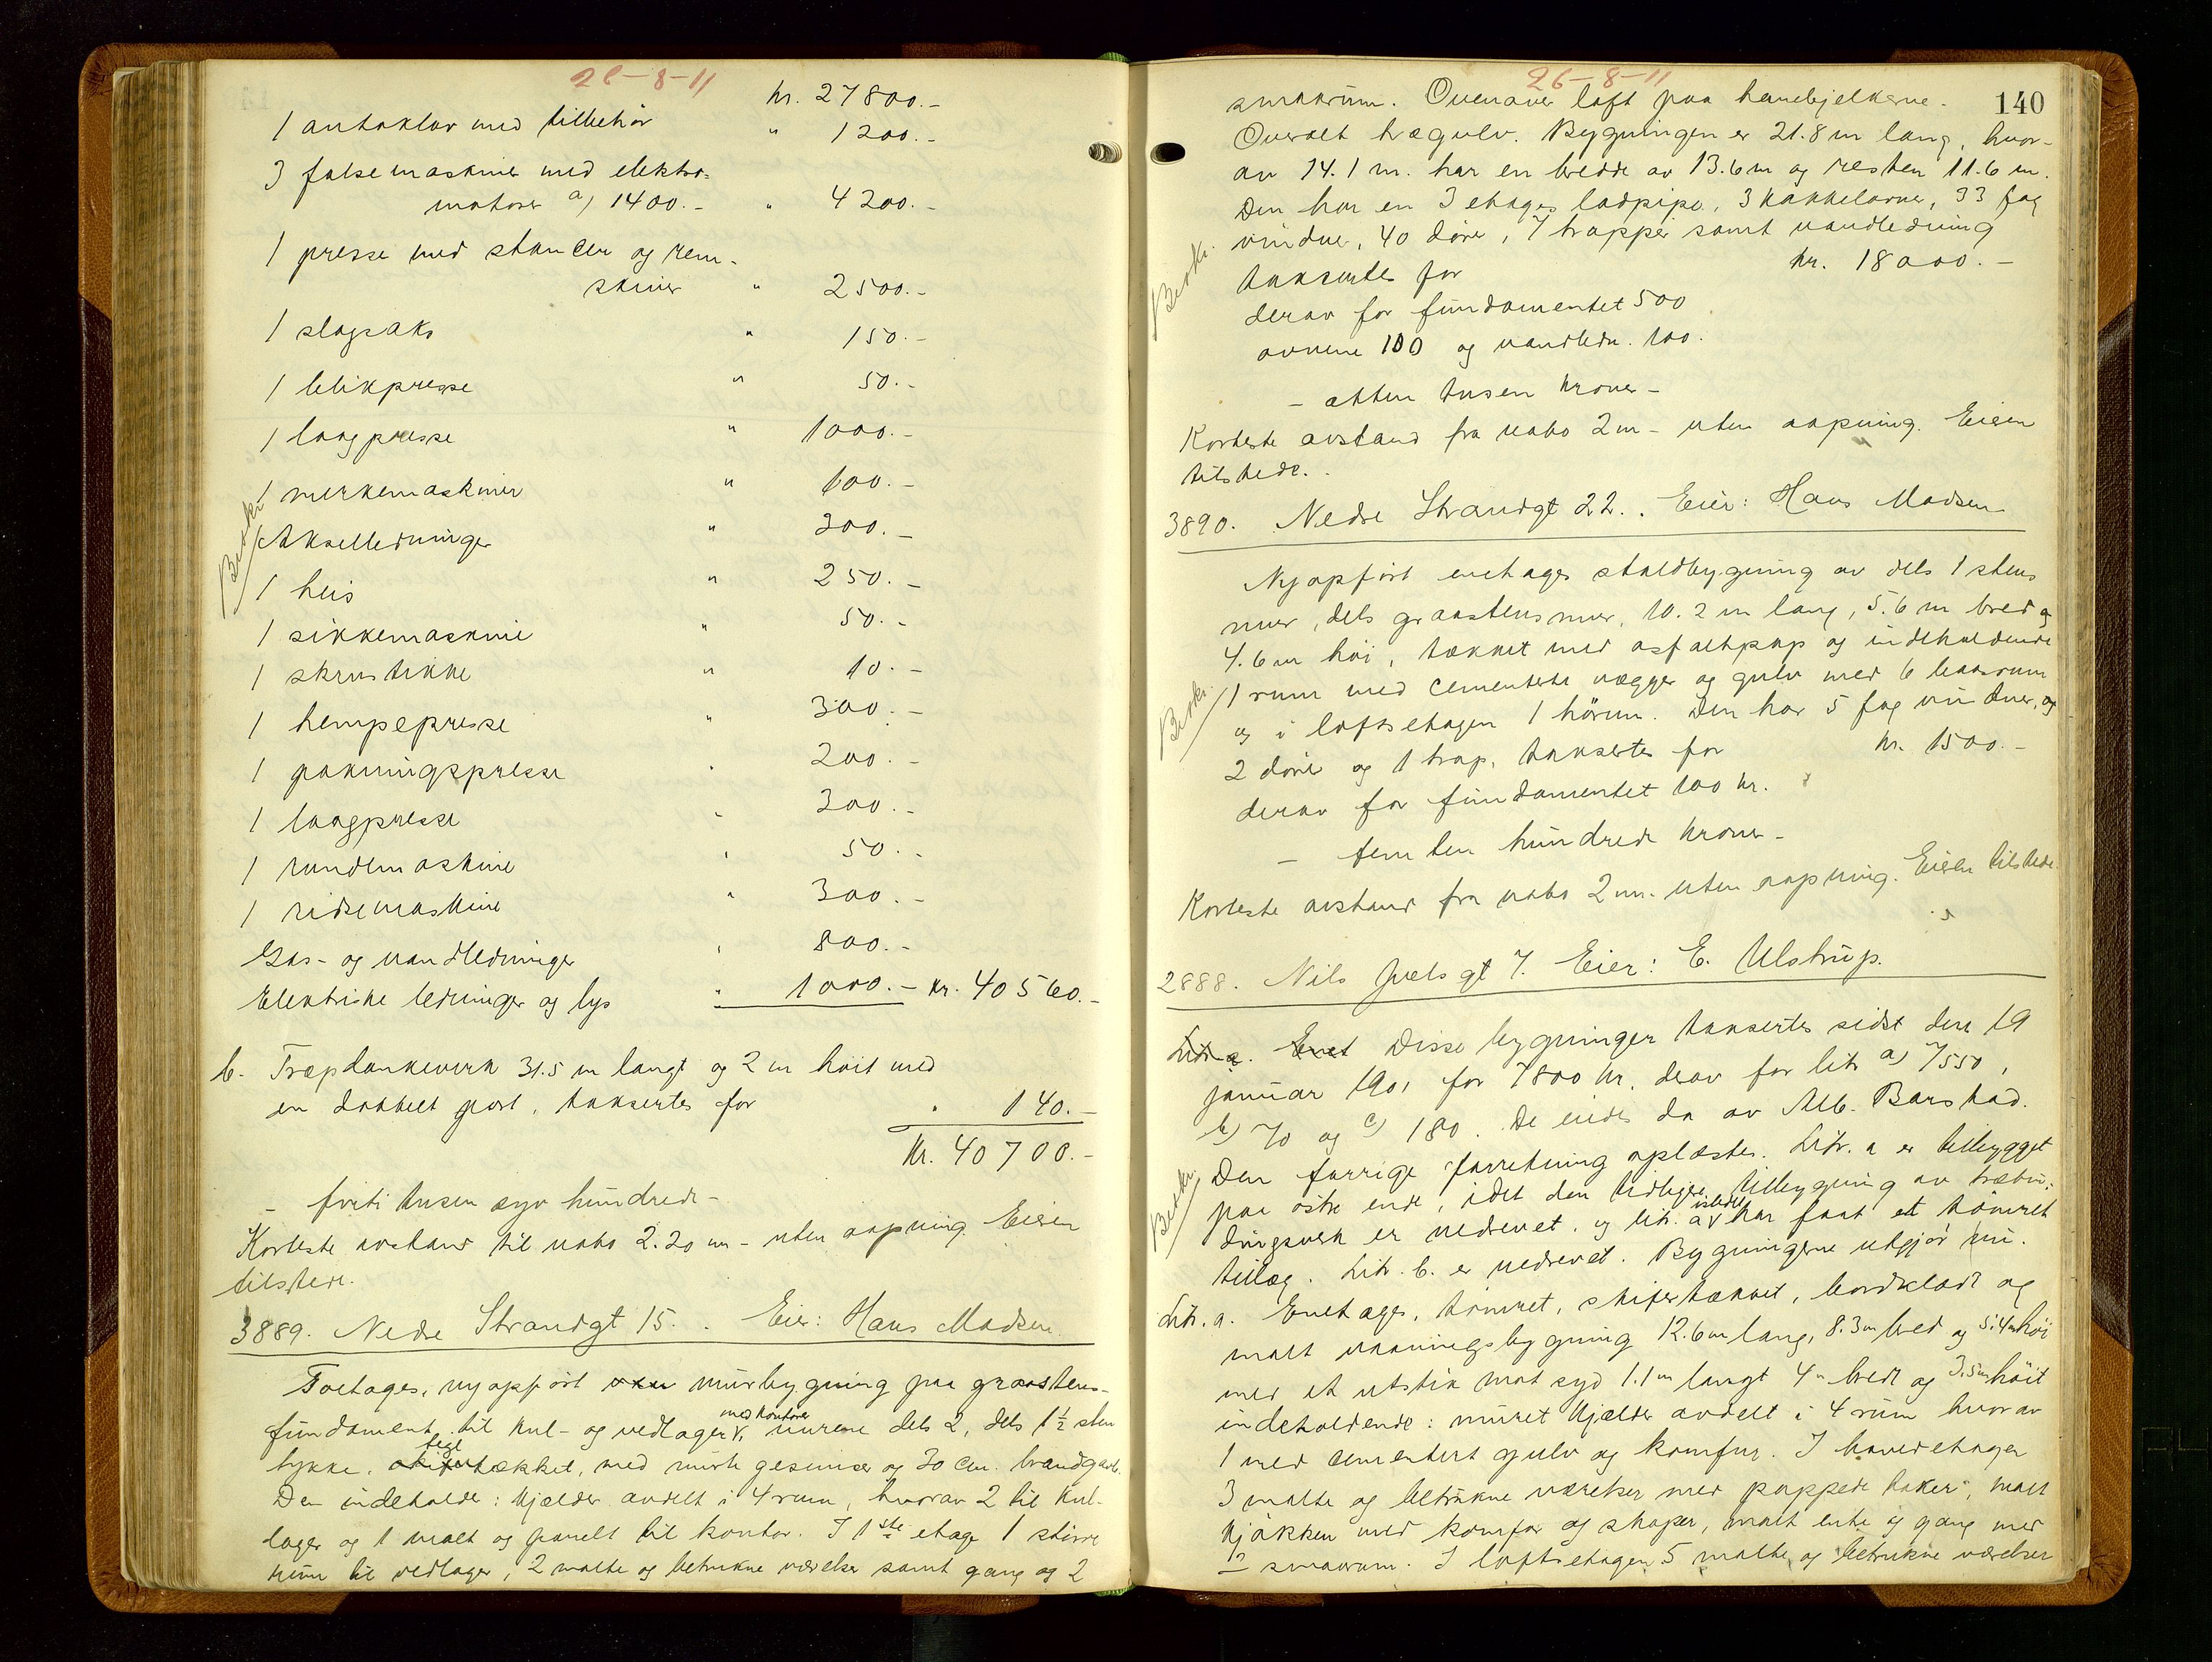 26-8-11
kr. 27800.-
1 autoklav med tilbehør " 1200.-
3 falsemaskiner med elektro-
motorer a) 1400.- " 4200.-
1 presse med stancer og rem-
skiver " 2500.-
1 slagsaks " 150.-
1 blikpresse " 50.-
1 laagpresse " 1000.-
1 merkemaskiner " 600.-
Akselledninger " 300.-
1 heis " 250.-
1 sikkemaskine " 50.-
1 skrustikke " 10.-
1 hempepresse " 300.-
1 pakningspresse " 200.-
1 laagpresse " 300.-
1 rundemaskine " 50.-
1 ridsemaskine " 300.-
Gas- og vandledninger " 800.-
Elektriske ledninger og lys " 1000.- kr. 40560.-
b. Træplankeverk 31.5 m langt og 2 m høit med
en dobbelt port, takseres for " 140.-
Kr. 40700.-
- firti tusen syv hundrede -
Korteste avstand til nabo 2.20 m - uten aapning. Eieren
tilstede.
3889. Nedre Strandgt 15. Eier: Hans Madsen
Toetages, nyopført murbygning paa graastens-
fundament til kul- og vedlager med kontorer, murene dels 2, dels 1½ sten
tykke, tegltækket, med murte gesimser og 30 cm. brandgavl.
Den indeholder: Kjælder avdelt i 4 rum, hvorav 2 til kul-
lager og 1 malt og panelt til kontor. I 1ste etage 1 større
rum til vedlager, 2 malte og betrukne værelser samt gang og 2
26-8-11
140
smaarum. Ovenover loft paa hanebjelkerne.
Overalt trægulv. Bygningen er 21.8 m lang, hvor-
av 14.1 m. har en bredde av 13.6 m og resten 11.6 m.
Den har en 3 etages ladpipe, 3 kakkelovner, 33 fag
vinduer, 40 døre, 7 trapper samt vandledning
takseres for kr. 18000.-
derav for fundamentet 500
ovnene 100 og vandledn. 100.
- atten tusen kroner -
Korteste avstand fra nabo 2 m - uten aapning. Eieren
tilstede.
3890. Nedre Strandgt 22. Eier: Hans Madsen
Nyopført enetages staldbygning av dels 1 stens
mur, dels graastensmur, 10.2 m lang, 5.6 m bred og
4.6 m høi, tækket med asfaltpap og indeholdende
1 rum med cementerte vægger og gulv med 6 baasrum
og i loftsetagen 1 hørum. Den har 5 fag vinduer, og
2 døre og 1 trap, takseres for kr. 1500.-
derav for fundamentet 100 kr.
- femten hundrede kroner -
Korteste avstand fra nabo 2 m. uten aapning. Eieren tilstede.
2888. Nils Juels gt 7. Eier: E. Ulstrup.
Litr. a. Enet Disse bygninger takseres sidst den 19
januar 1901 for 7800 kr. derav for litr a) 7550,
b) 70 og c) 180. De eiedes da av Alb. Barstad.
Den forrige forretning oplæstes. Litr. a er tilbygget
paa østre ende, idet den tidligere tilbygning av træbin-
dingsverk er nedrevet og litr. a istedet har faat et tømret
tillæg. Litr. b. er nedrevet. Bygningerne utgjør nu:
Litr. a. Enetages, tømret, skifertækket, bordklædt og
malt vaaningsbygning 12.6 m lang, 8.3 m bred og 5.4 m høi
med et utstik mot syd 1.1 m langt 4 m bredt og 3.5 m høit
indeholdende: muret kjælder avdelt i 4 rum hvorav
1 med cementert gulv og komfur. I hovedetagen
3 malte og betrukne værelser med pappede taker, malt
kjøkken med komfur og skaper, malt entre og gang med
2 smaarum. I loftsetagen 5 malte og betrukne værelser